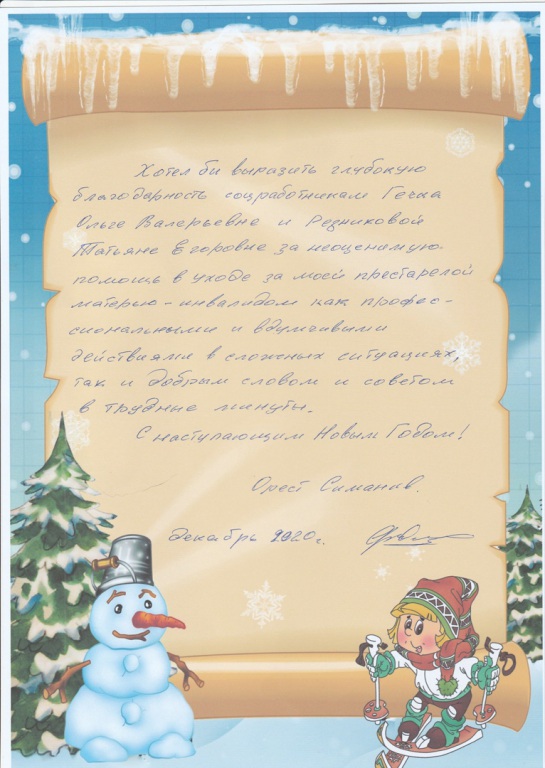 Хотел би выразить глубокую
благодарность соцработникам Гечка
Ольге Валерьевне и Резниковой
Татьяне Егоровне за неоценимую
помощь в уходе за моей престарелой
матерью-инвалидом как профес-
сиональными и вдумчивыми
действиями в сложных ситуациях,
так и добрым словом и советом
в трудные минуты.
С наступающим Новым Годом!
Орест Симанив.
Декабрь 2020г.